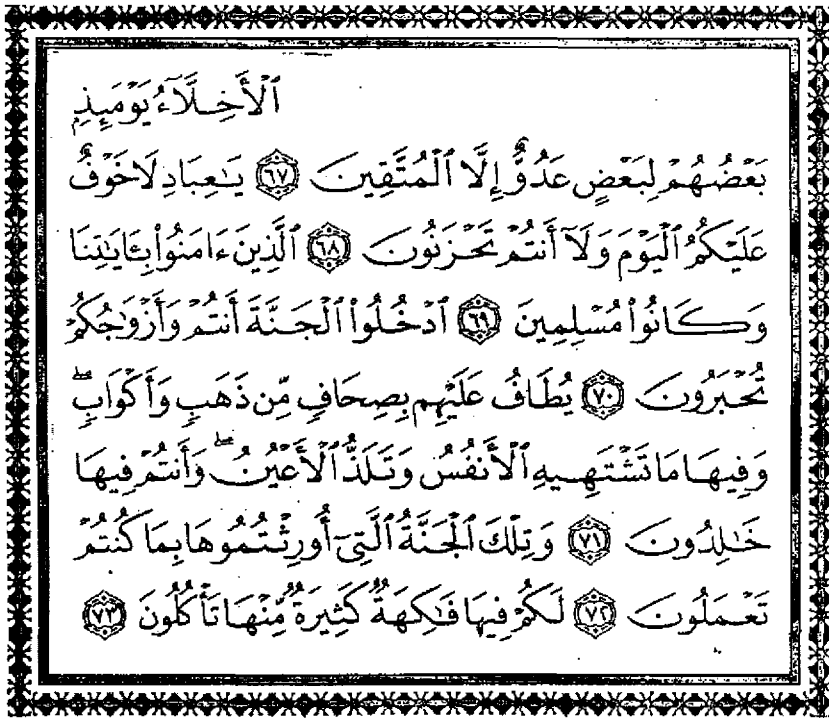 ٱلْأَخِلَّآءُ يَوْمَئِذِۭ
بَعْضُهُمْ لِبَعْضٍ عَدُوٌّ إِلَّا ٱلْمُتَّقِينَ ﴿٦٧﴾ يَٰعِبَادِ لَا خَوْفٌ
عَلَيْكُمُ ٱلْيَوْمَ وَلَآ أَنتُمْ تَحْزَنُونَ ﴿٦٨﴾ ٱلَّذِينَ ءَامَنُوا۟ بِـَٔايَٰتِنَا
وَكَانُوا۟ مُسْلِمِينَ ﴿٦٩﴾ ٱدْخُلُوا۟ ٱلْجَنَّةَ أَنتُمْ وَأَزْوَٰجُكُمْ
تُحْبَرُونَ ﴿٧٠﴾ يُطَافُ عَلَيْهِم بِصِحَافٍ مِّن ذَهَبٍ وَأَكْوَابٍ ۖ
وَفِيهَا مَا تَشْتَهِيهِ ٱلْأَنفُسُ وَتَلَذُّ ٱلْأَعْيُنُ ۖ وَأَنتُمْ فِيهَا
خَٰلِدُونَ ﴿٧١﴾ وَتِلْكَ ٱلْجَنَّةُ ٱلَّتِىٓ أُورِثْتُمُوهَا بِمَا كُنتُمْ
تَعْمَلُونَ ﴿٧٢﴾ لَكُمْ فِيهَا فَٰكِهَةٌ كَثِيرَةٌ مِّنْهَا تَأْكُلُونَ ﴿٧٣﴾